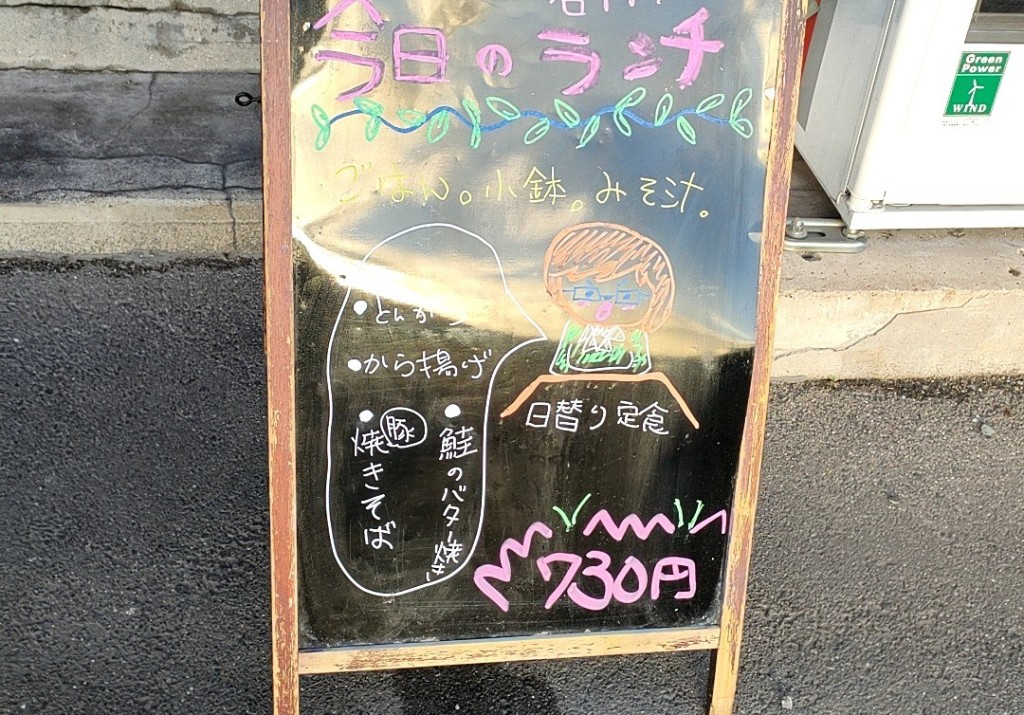 今日のランチ
ごはん。小鉢。みそ汁。
・から揚げ
・豚焼きそば
・鮭のバター焼き
日替り定食
730円
Green
Power
WIND